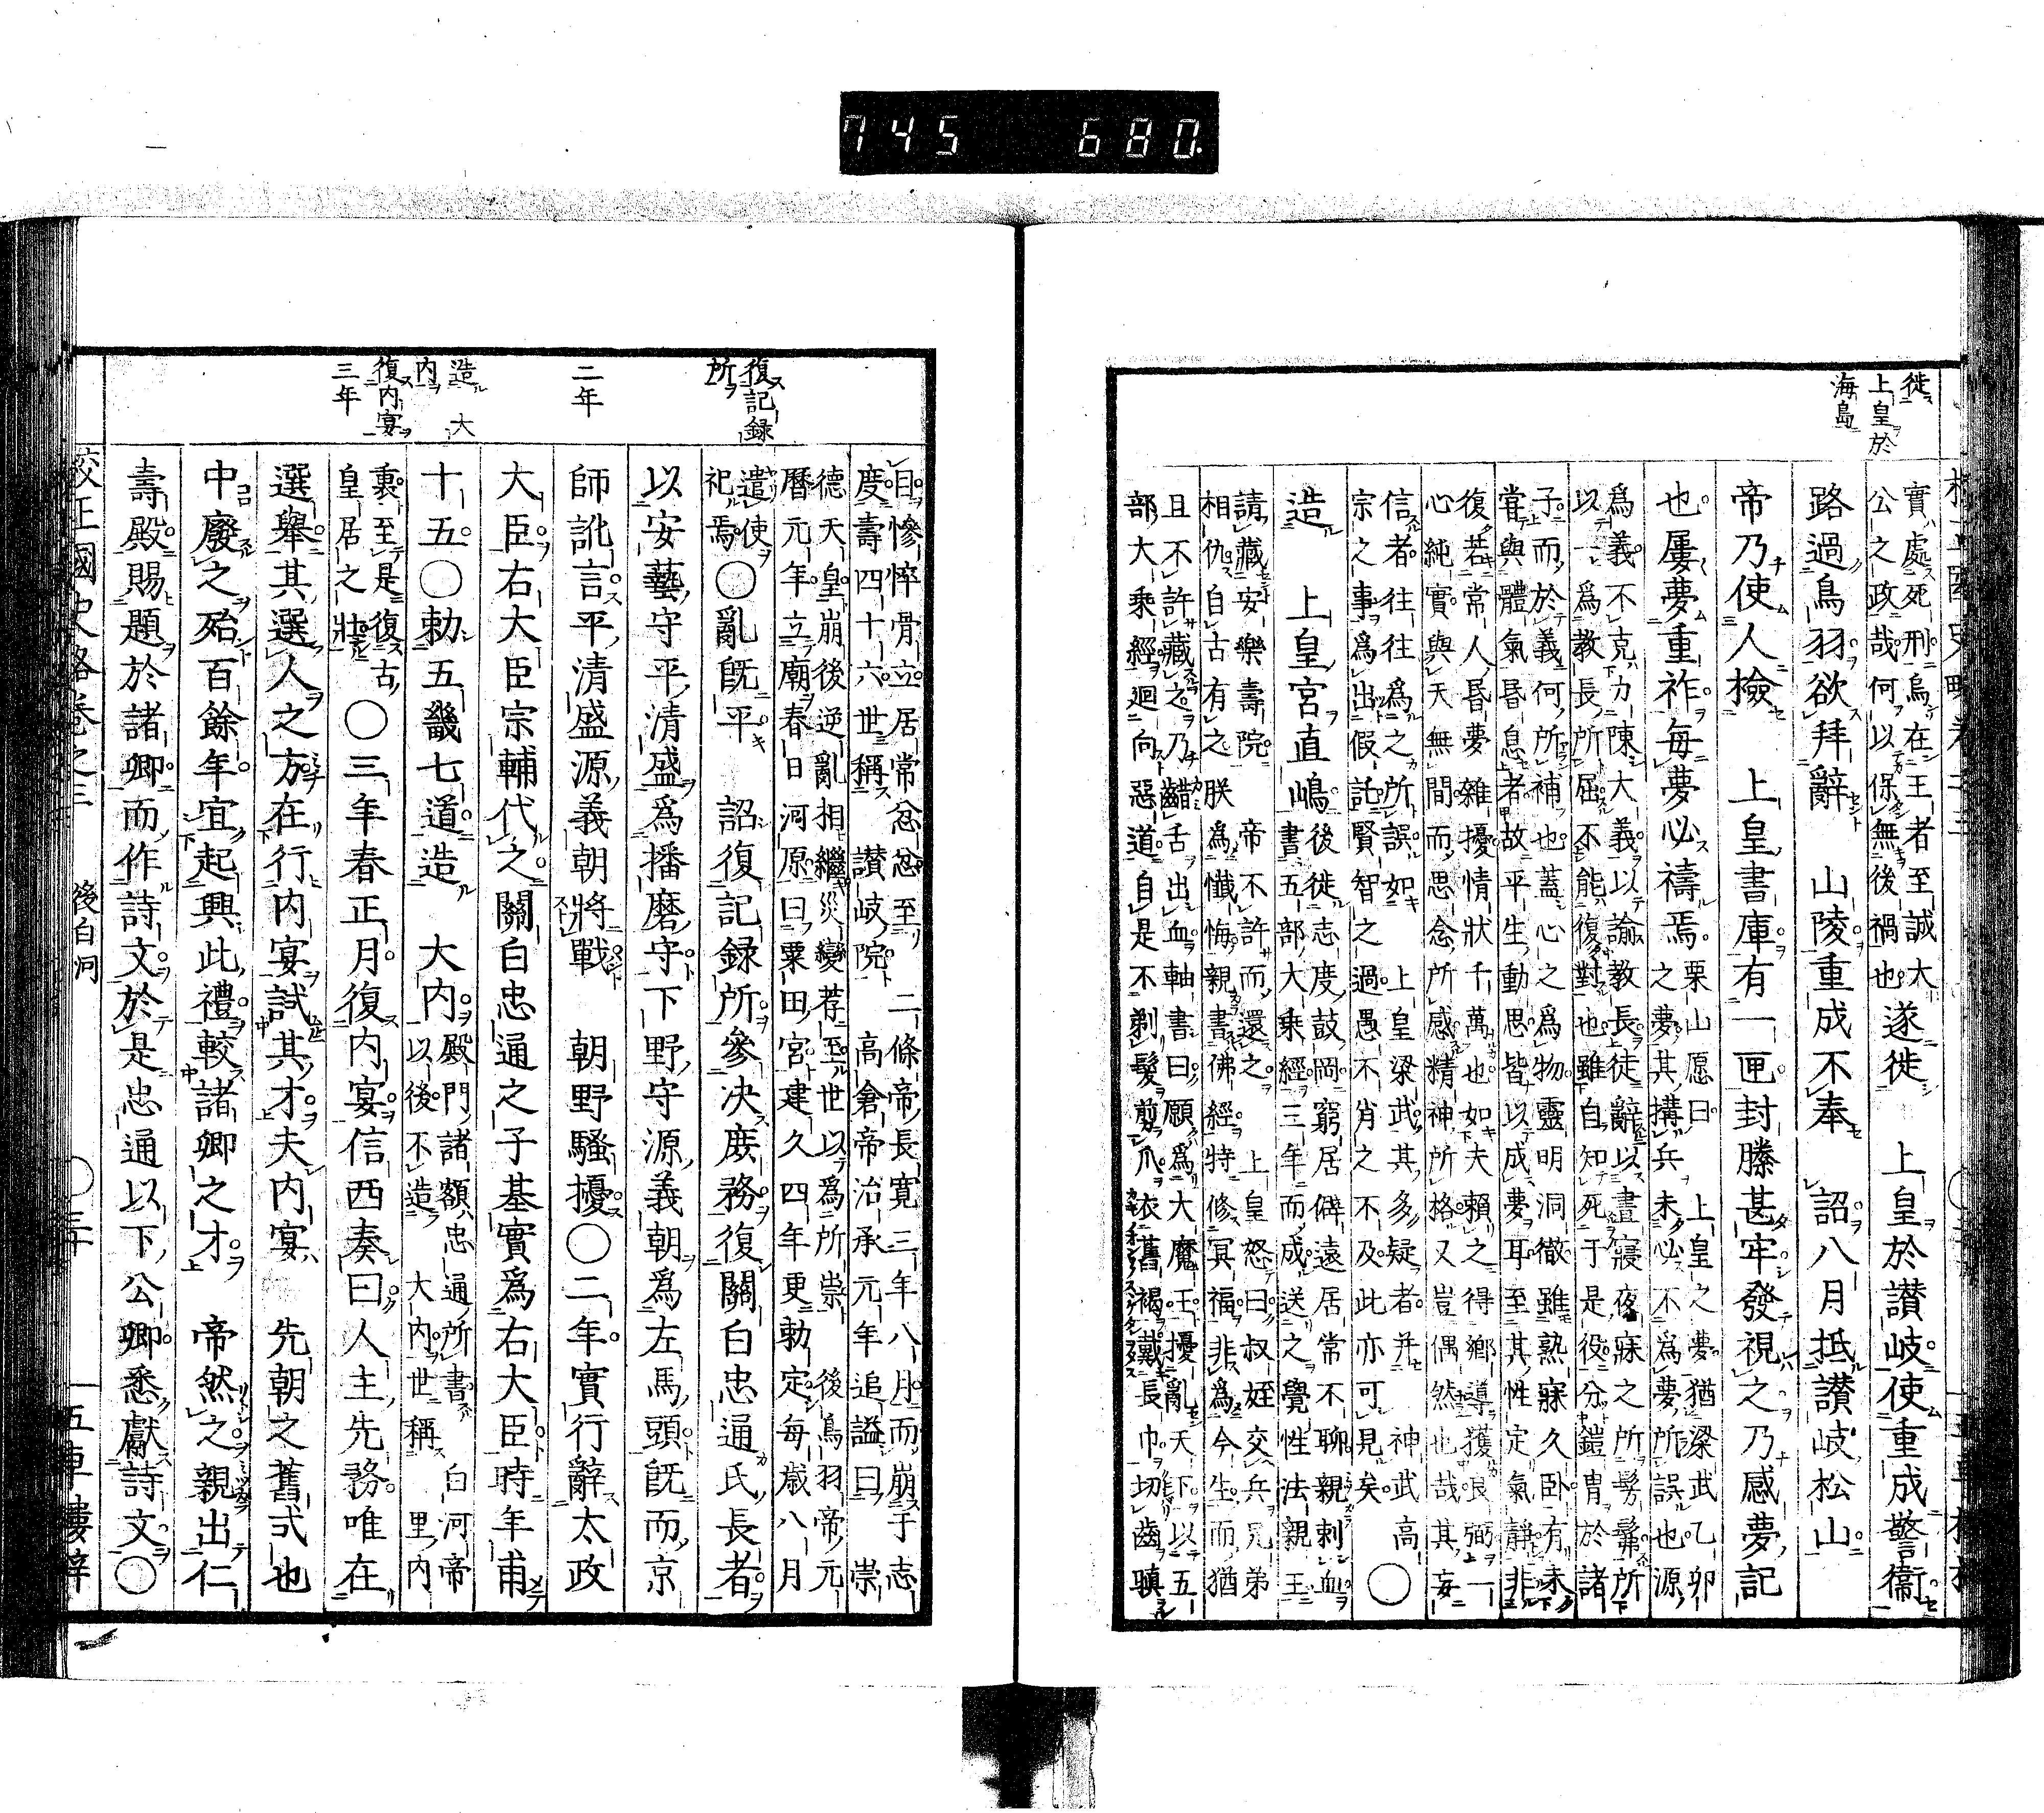 745 680.
徙
上皇於
海島
實處死刑烏在王者至誠大
公之政哉何以保無後禍也遂徙 上皇於讃岐使重成警衞
路過鳥羽欲拜辭 山陵重成不奉 詔八月抵讃岐松山
帝乃使人檢 上皇書庫有一匣封縢甚牢發視之乃感夢記
也屢夢重祚毎夢必禱焉栗山愿曰 上皇之夢猶梁武乙卯
之夢其搆兵未必不爲夢所誤也源
爲義不克力陳大義以諭教長徒辭以晝寢夜寐之所髣髴所
以一爲教長所屈不能復對也雖自知死于是役分鎧冑於諸
子而於義何所補也蓋心之爲物靈明洞徹雖熟寐久卧有未
嘗與體氣昏息者故平生動思皆以成夢耳至其性定氣靜非
復若常人昏夢雜擾情狀千萬也如夫賴之得鄉導獲良弼一
心純實與天無間而思念所感精神所格又豈偶然也哉其妄
信者往往爲之所誤如 上皇梁武其多疑者并 神武高
宗之事爲出假託賢智之過愚不肖之不及此亦可見矣 〇
造 上皇宮直嶋後徙志度鼓岡窮居僻遠居常不聊親刺血
書五部大乘經三年而成送之覺性法親王
請藏安樂壽院 帝不許而還之 上皇怒曰叔姪交兵兄弟
相仇自古有之朕爲懺悔親書佛經特修冥福非爲今生而猶
且不許藏之乃齰舌出血軸書曰願爲大魔王擾亂天下以五
部大乘經迴向惡道自是不剃髮剪爪依舊褐戴長巾切齒瞋
復記録
所
二年
造大
内
復内宴
三年
目慘悴骨立居常忿忿至 二條帝長寛三年八月而崩于志
度壽四十六世稱 讃岐院 高倉帝治承元年追謚曰 崇
德天皇崩後逆亂相繼災變荐至世以爲所崇 後鳥羽帝元
曆元年立廟春日河原曰粟田宮建久四年更勅定毎歲八月
遣使
祀焉〇亂既平 詔復記録所參决庶務復關白忠通氏長者
以安藝守平清盛爲播磨守下野守源義朝爲左馬頭既而京
師訛言平清盛源義朝將戰 朝野騷擾〇二年實行辭太政
大臣右大臣宗輔代之關白忠通之子基實爲右大臣時年甫
十五〇勅五畿七道造 大内殿門諸額忠通所書 白河帝
以後不造 大内世稱 里内
裏至是復古
皇居之壯〇三年春正月復内宴信西奏曰人主先務唯在
選舉其選人之方在行内宴試其才夫内宴 先朝之舊式也
中廢之殆百餘年宜起興此禮較諸卿之才 帝然之親出仁
壽殿賜題於諸卿而作詩文於是忠通以下公卿悉獻詩文〇
校正國史略卷之三 後白河 〇三十 五車樓梓